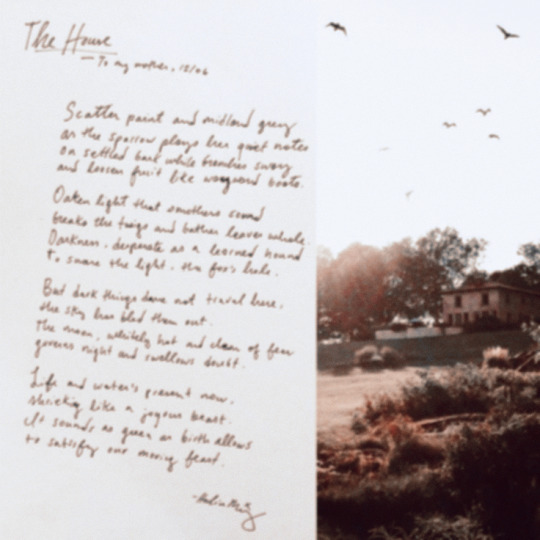 The House
— To my mother, 12/06
Scatter paint and midland grey
as the sparrow plays her quiet notes
on settled bark while branches sway
and loosen fruit like wayward boats.
Oaken light that smothers sound
breaks the twigs and bathes leaves whole.
Darkness, desperate as a learned hound
to snare the light, the fox's hole.
But dark things dare not travel here,
the sky has bled them out.
The moon, whitely hot and clean of fear
governs night and swallows doubt.
Life and water's present now,
shrieking like a joyous beast.
It sounds as green as birth allows
to satisfy our moving feast.